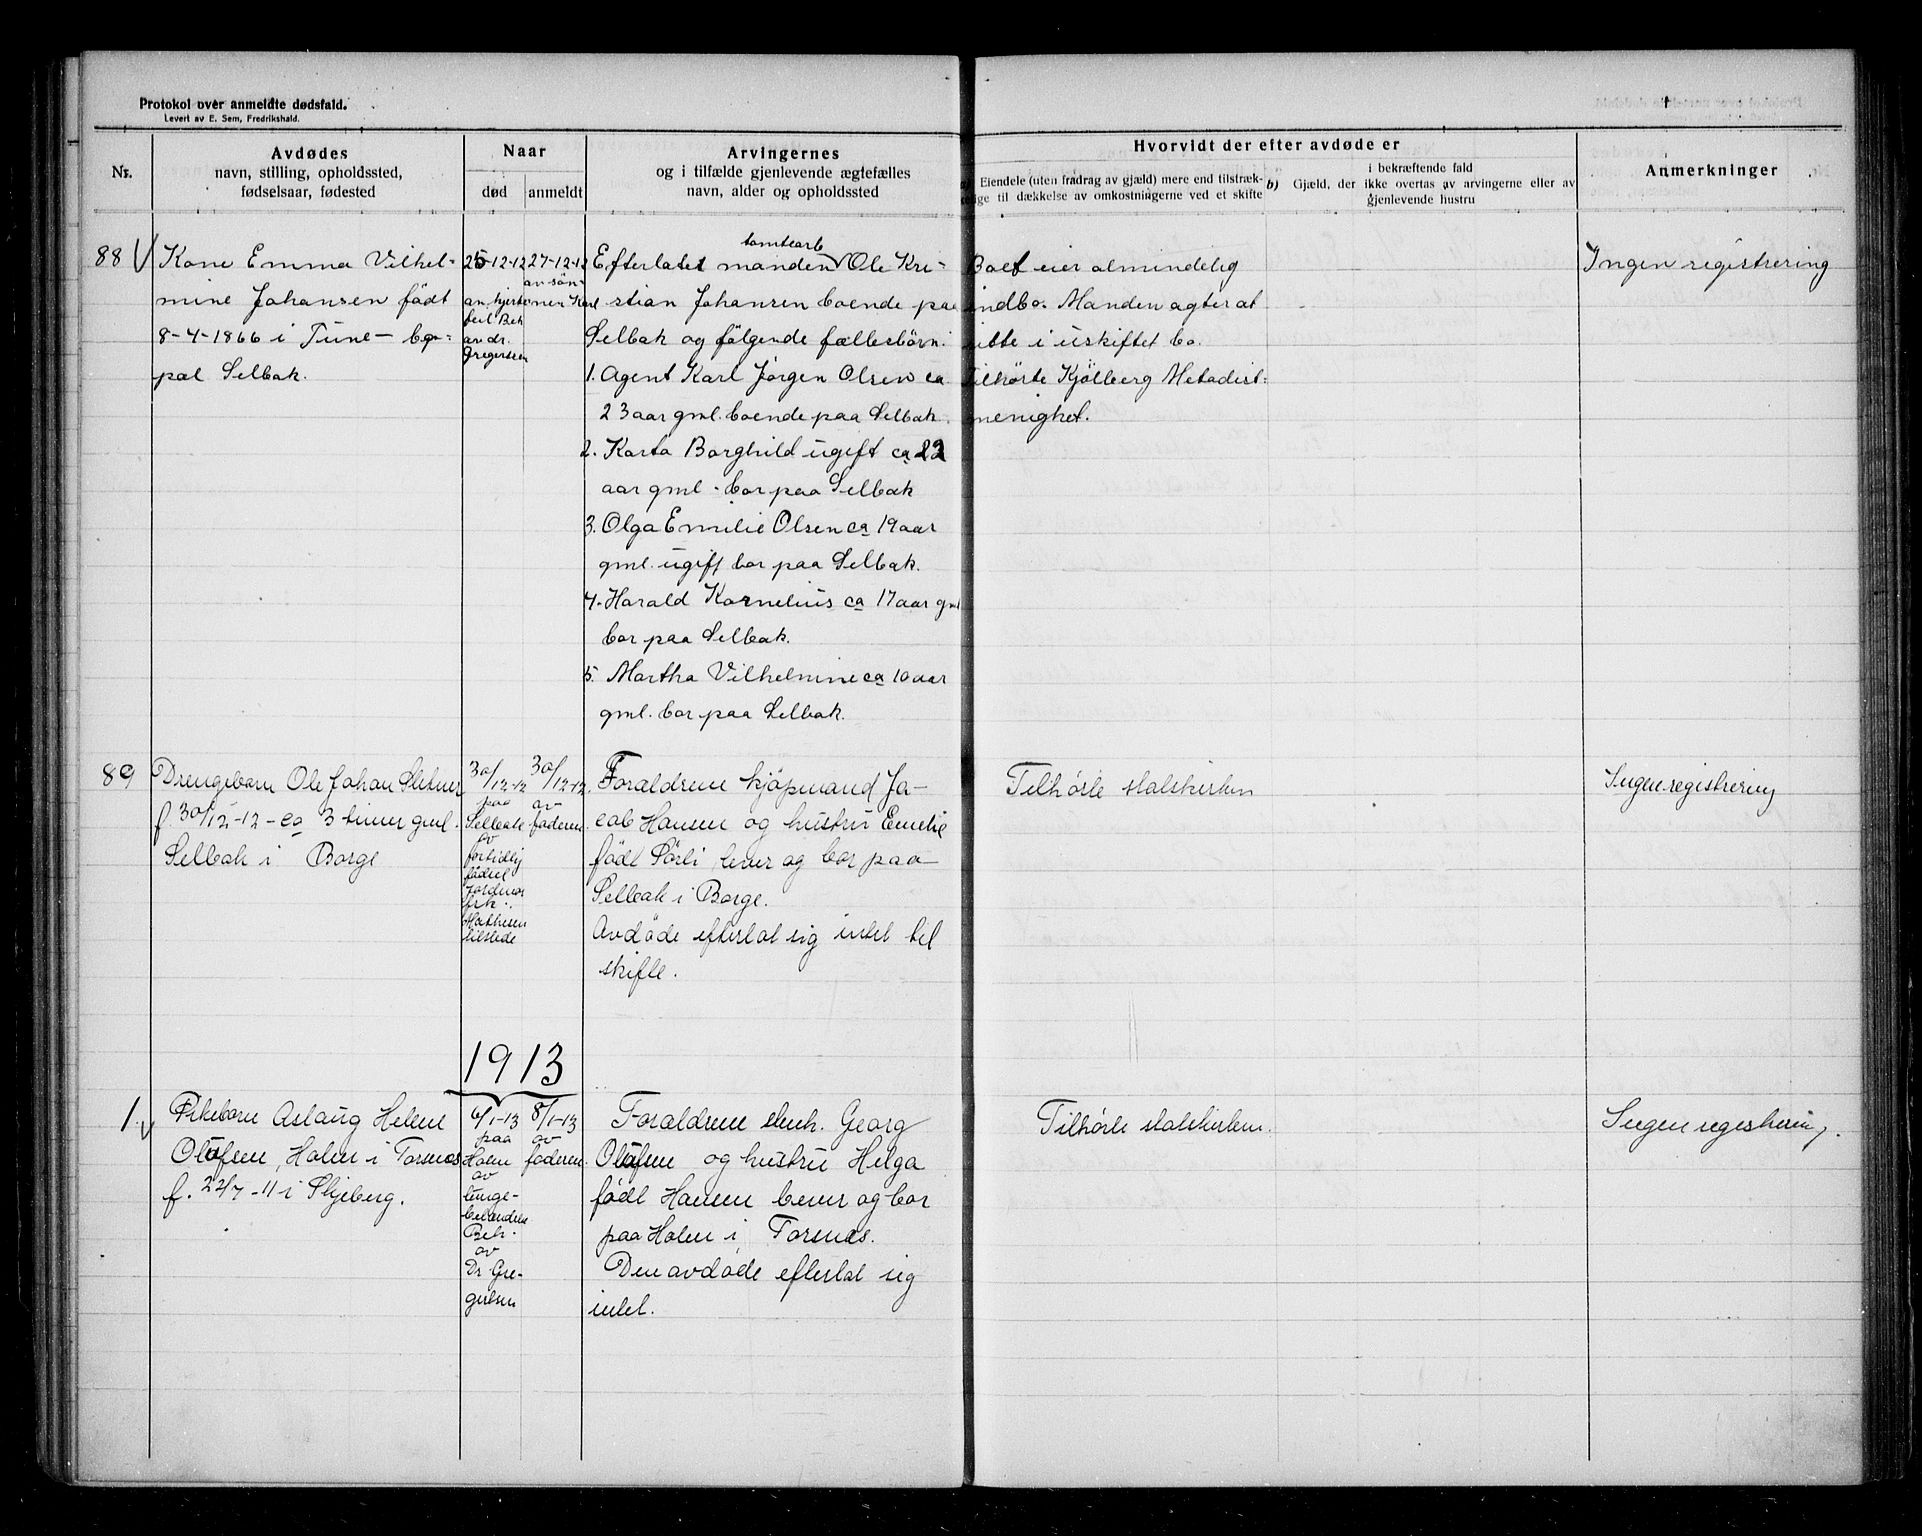 Protokol over anmeldte dødsfald.
Levert av E. Sem, Fredrikshald.
Nr.
Avdødes
navn, stilling, opholdssted,
fødselsaar, fødested
Naar
død
anmeldt
Arvingernes
og i tilfælde gjenlevende ægtefælles
navn, alder og opholdssted
Hvorvidt der efter avdøde er
Eiendele (uten fradrag av gjæld) mere end tilstræk-
lige til dækkelse av omkostningerne ved et skifte
b)
i bekræftende fald
Gjæld, der ikke overtas av arvingerne eller av
gjenlevende hustru
Anmerkninger
88
Kone Emma Vilhel-
mine Johansen født
8-4-1866 i Tune - bo-
pæl Selbak.
25-12-12
av hjerte-
feil Beh
av dr.
Gregertsen
27-12-12
av søn-
nen Karl
tomtearb
Efterlatet manden Ole Kri-
stian Johansen boende paa
Selbak og følgende fællesbørn:
1. Agent Karl Jørgen Olsen ca
23 aar gml. boende paa Selbak.
2. Karta Borghild ugift ca 22
aar gml - bor paa Selbak
3. Olga Emilie Olsen ca 19 aar
gml. ugift bor paa Selbak.
4. Harald Kornelius ca 17 aar gml
bor paa Selbak.
5. Martha Vilhelmine ca 10 aar
gml. bor paa Selbak.
Boet eier almindelig
indbo. Manden agter at
sitte i uskiftet bo.
Tilhørte Kjølberg Metodist-
menighet.
Ingen registrering
89
Drengebarn Ole Johan Sletner
f. 30/12-12 - ca 3 timer gml.
Selbak i Borge
30/12-12
paa
Selbak
av
fortidlig
fødsel
jordmor
frk.
Mathesen
tilstede
30/12-12.
av
faderen.
Forældrene kjøpmand Ja-
cob Hansen og hustru Emelie
født Sørli lever og bor paa
Selbak i Borge.
Avdøde efterlot sig intet til
skifte.
Tilhørte statskirken
Ingen registrering
1913
1.
Pikebarn Aslaug Helene
Olafsen, Holm i Torsnes
f. 22/7-11 i Skjeberg.
6/1-13
paa
Holm
av
lunge-
betændelse
Beh.
av
Dr Gre-
gertsen
8/1-13
av
faderen.
Forældrene stenh. Georg
Olafsen og hustru Helga
født Hansen lever og bor
paa Holm i Torsnes.
Den avdøde efterlot sig
intet.
Tilhørte statskirken.
Ingen registrering.